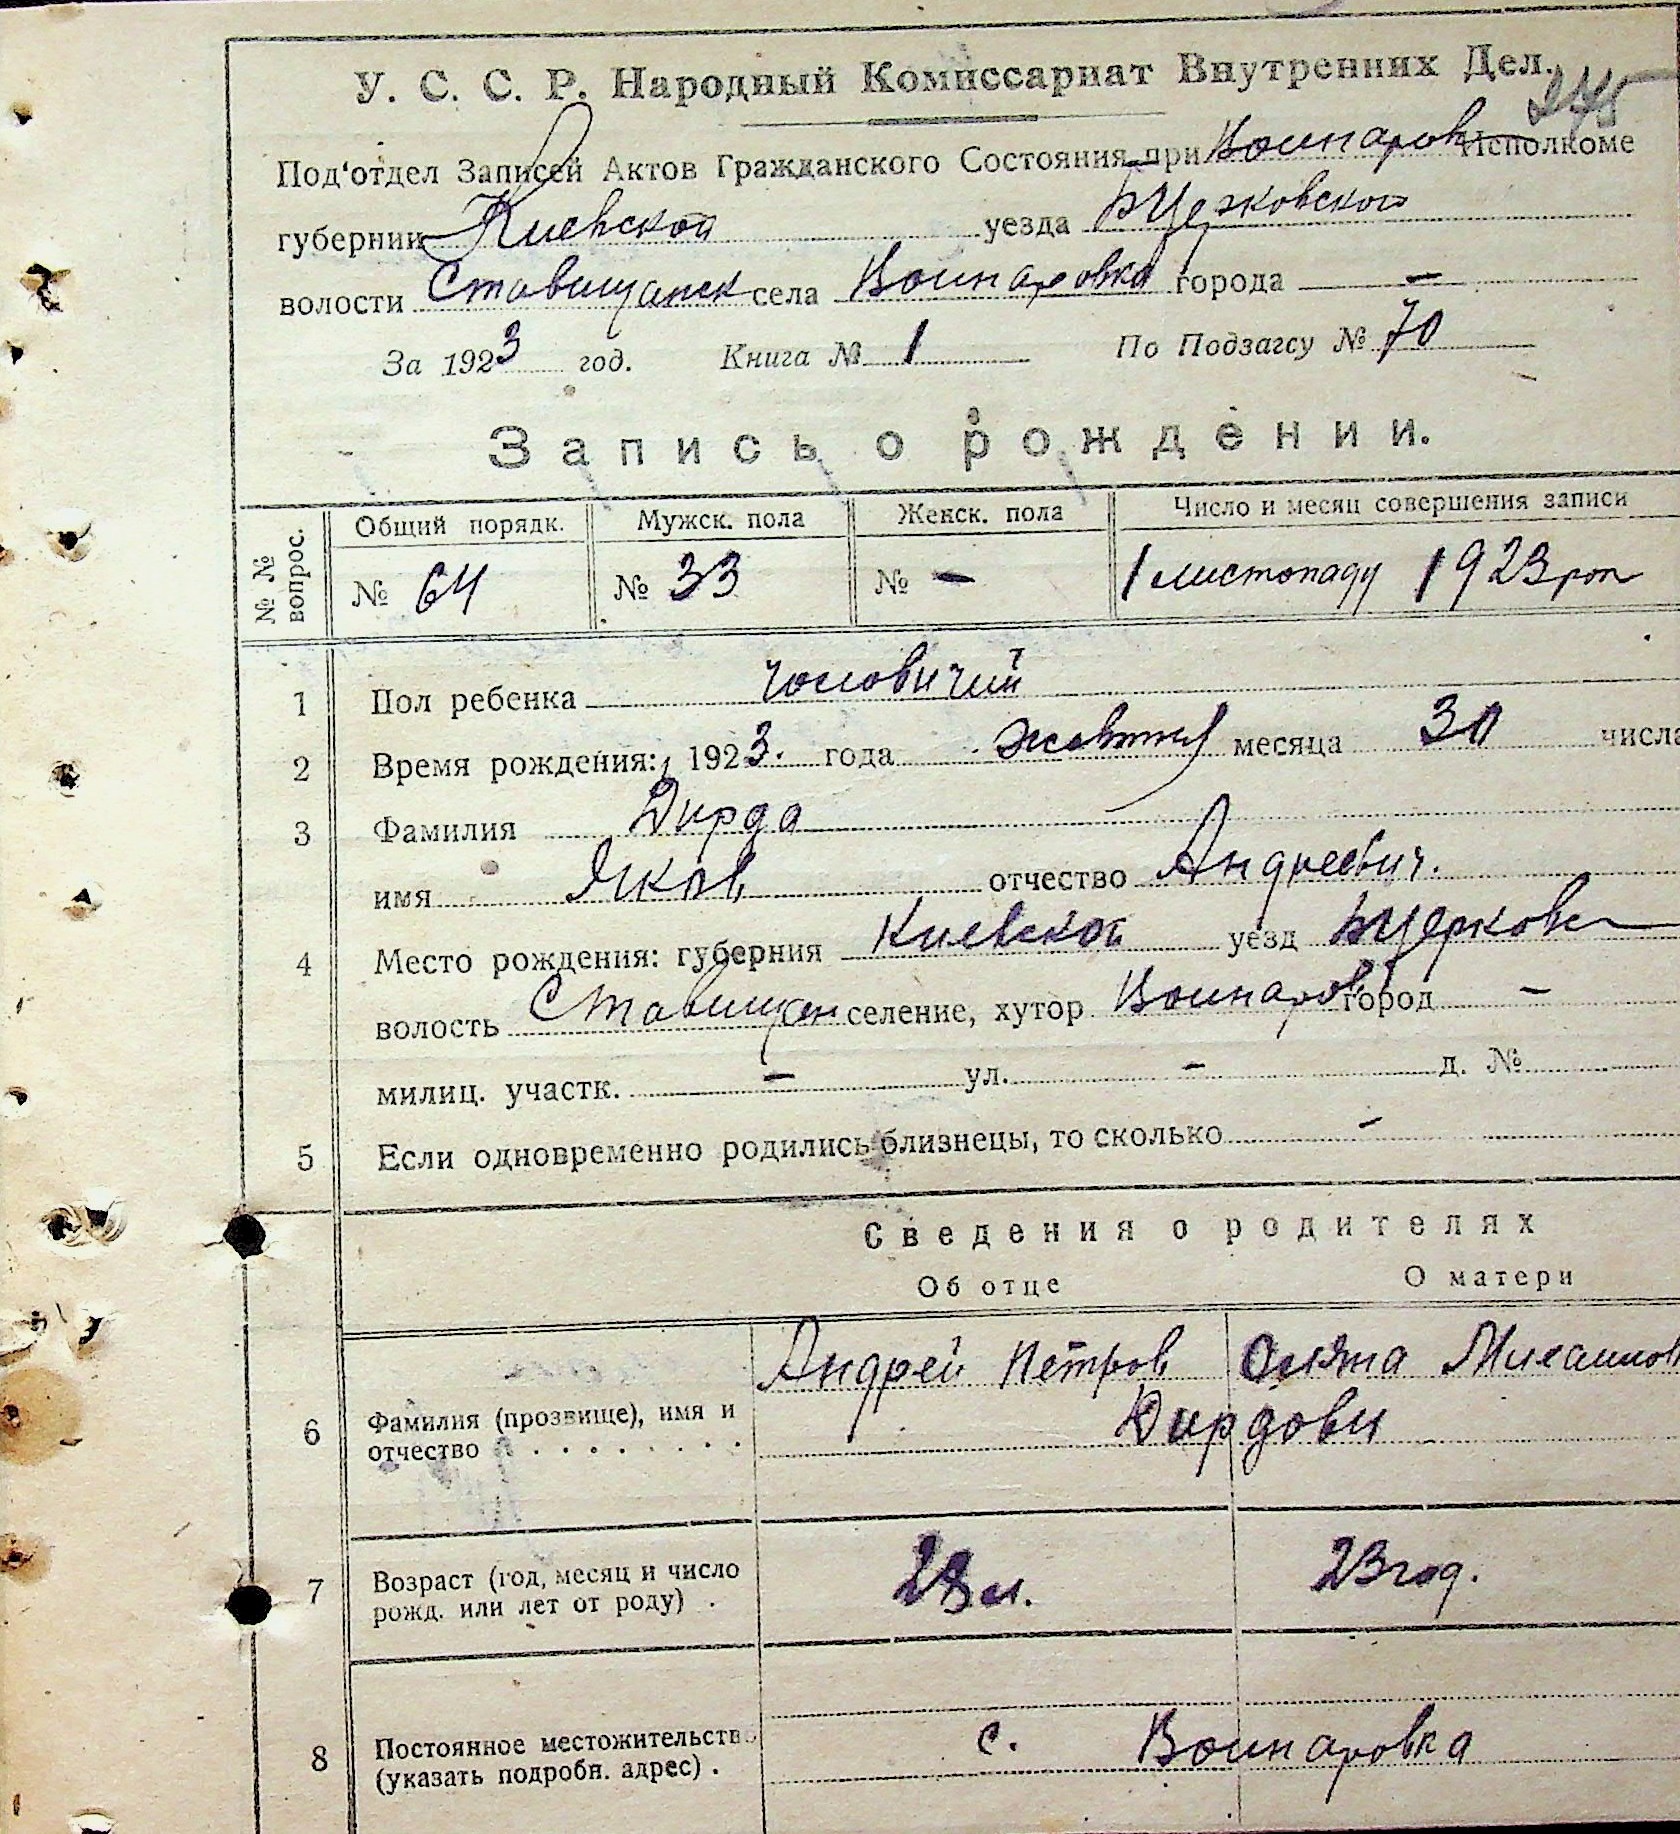 У. С. С. Р. Народный Комиссариат Внутренних Дел.
275
Под'отдел Записей Актов Гражданского Состояния при Воинаров Исполкоме
губернии Киевской уезда БЦерковского
волости Ставищанск села Воинаровка города —
За 1923 год. Книга № 1 По Подзагсу № 70
Запись о рождении.
№ № вопрос. Общий порядк. Мужск. пола Женск. пола Число и месяц совершения записи
№ 64 № 33 № — 1 листопаду 1923 рок
1 Пол ребенка чоловичий
2 Время рождения: 1923. года жовтня месяца 30 числа
3 Фамилия Дирда
имя Яков отчество Андреевич.
4 Место рождения: губерния Киевской уезд БЦерковс
волость Ставищан селение, хутор Воинаров город —
милиц. участк. — ул. — д. №
5 Если одновременно родились близнецы, то сколько —
Сведения о родителях
Об отце О матери
Андрей Петров Оляна Михаилов
6 Фамилия (прозвище), имя и Дирдови
отчество . . . . . . . .
7 Возраст (год, месяц и число 28 л. 23 год.
рожд. или лет от роду) .
8 Постоянное местожительство с. Воинаровка
(указать подробн. адрес) .